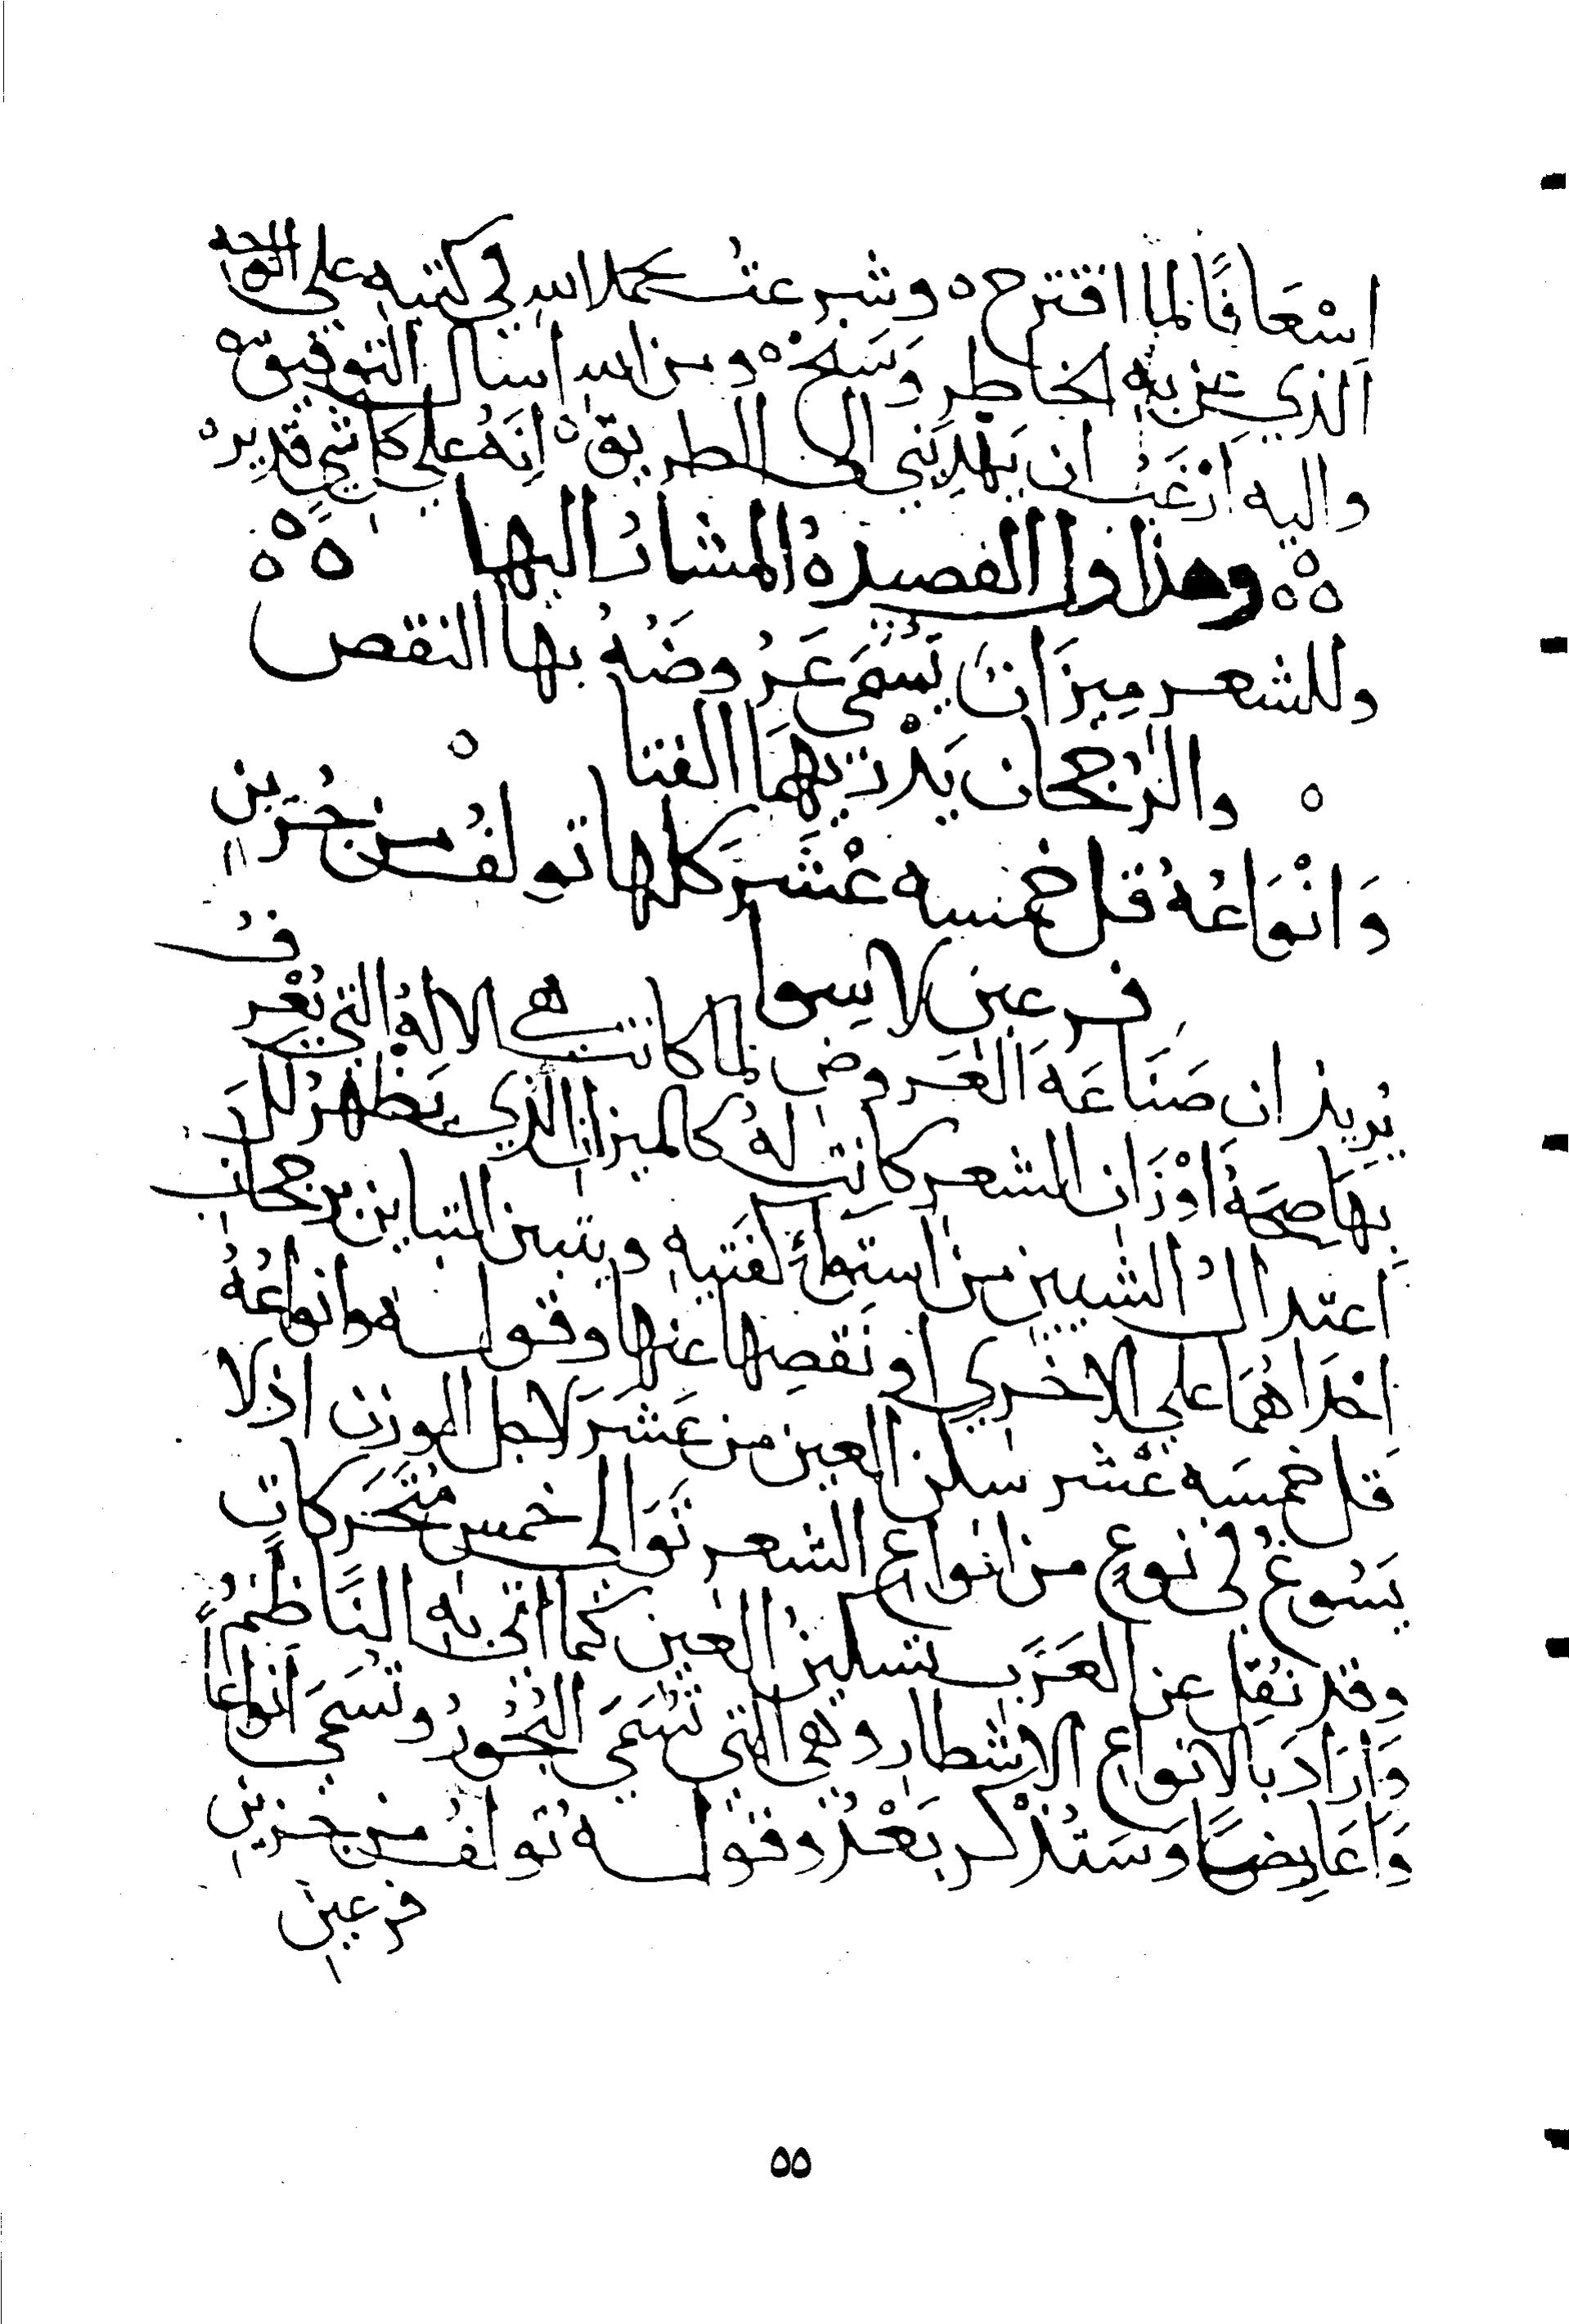 اِسْعَافًا لما اقترح ه وشرعتُ بحمد الله في كتبهِ على الوجه
الذي عن بهِ الخاطر وَسَنَحْ ه ومن الله اسال التوفيق ه
واليه اَرْغَبُ ان يَهْدِيَنِي الى الطريق ه اِنَهُ على كل شيٍ قدير ه
وهذا اول القصيدةُ المشارُ اليها
وللشعر مِيزَانٌ يُسَمَى عَرُوضَهُ بها النقص
والرُجحان يَدْرِيهِمَا الفتا
وَانْوَاعُهُ قل خمسه عْشَرَ كلها تولفُ من جُزين
فرعين لا سِوا
يُرِيدُ ان صَنَاعَةَ العَروض لما كانت هي الالهُ التي يُعْرفُ
بِهَا صِحَةُ اَوْزَان الشعر كانت لهُ كالميزان الذي يَظْهرُ لكَ
اعتدالُ الشيين من استواءِ كفتيهِ ويتبين التباين برجحان
احْدَاهُمَا على الاخري او نَقصِها عنها وقوله وانواعُهُ
قل خمسَه عْشر سكن العين من عَشَرَ لاجل الوزن اذ لا
يَسُوغُ في نوعٍ من انواع الشعر تَوَالى خمس مُتَحَركاتٍ
وقد نُقِل عن العَرَب تسكينُ العين كما اتى به النَّاظمُ
وَاَرَادَ بالانواع الاشطار وهي التي تُسَمَى البُحُورُ وتُسَمَى اَنواعاً
وَاَعَارِيضًا وَسَتُذْكر بَعْدُ وقوله تُولفُ من جزين
فرعين
٥٥